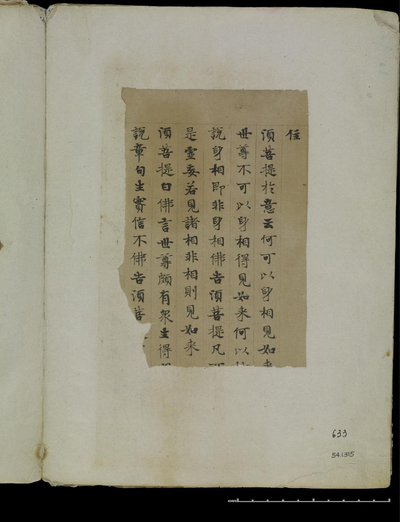 住
須菩提於意云何可以身相見如来
世尊不可以身相得見如来何以
說身相即非身相佛告須菩提凡
是虛妄若見諸相非相則見如来
須菩提白佛言世尊頗有衆生得
說章句生實信不佛告須菩
633
54.1315